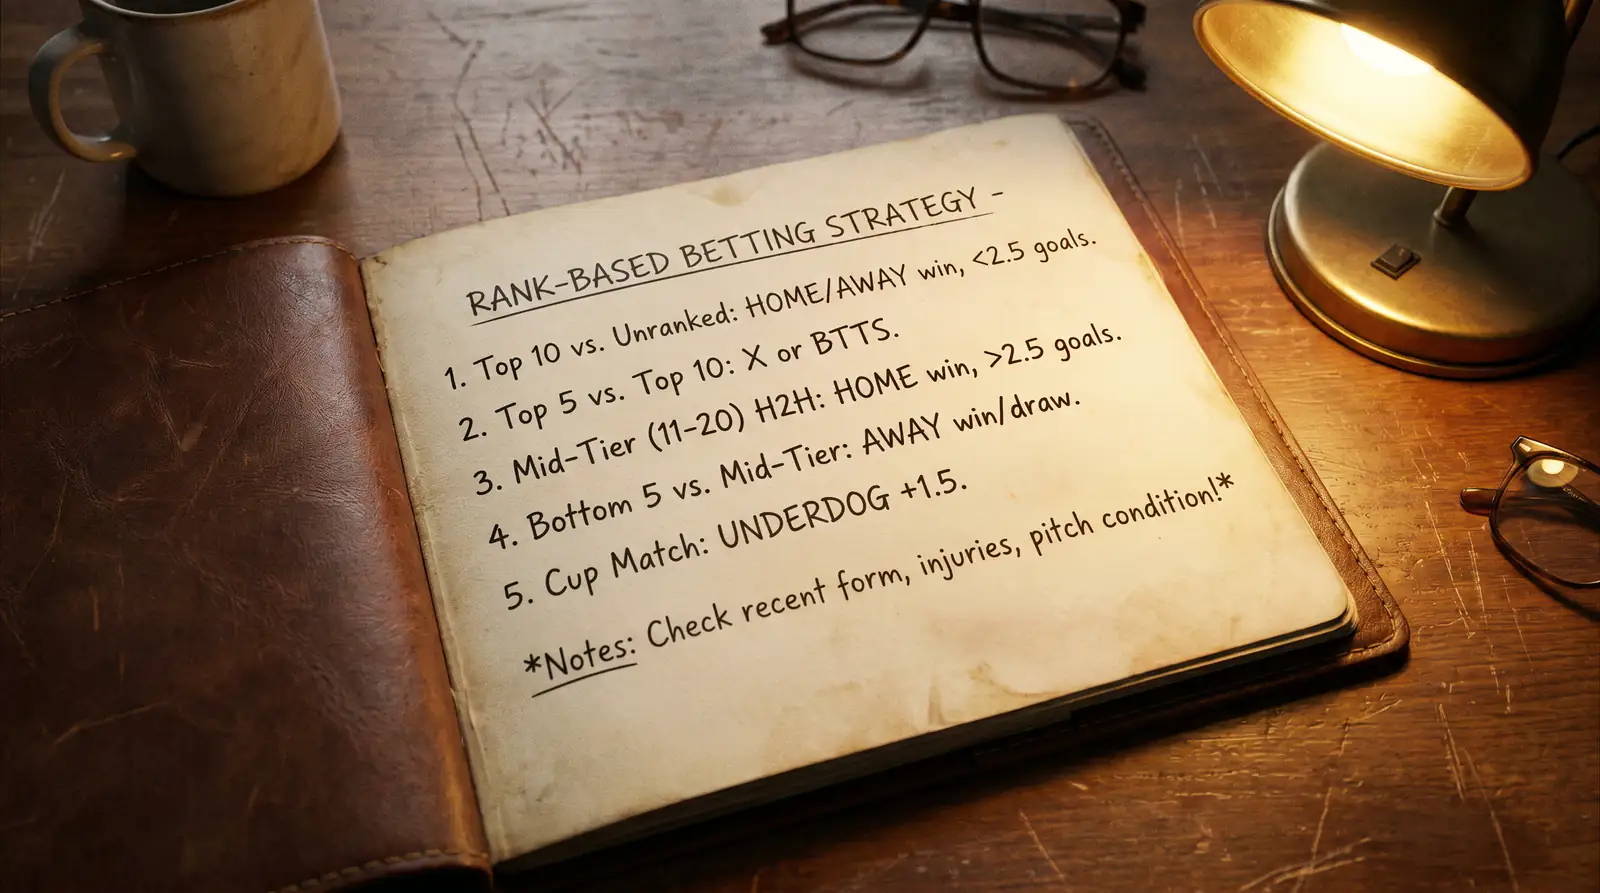 RANK-BASED BETTING STRATEGY -
1. Top 10 vs. Unranked: HOME/AWAY win, <2.5 goals.
2. Top 5 vs. Top 10: X or BTTS.
3. Mid-Tier (11-20) H2H: HOME win, >2.5 goals.
4. Bottom 5 vs. Mid-Tier: AWAY win/draw.
5. Cup Match: UNDERDOG +1.5.
*Notes: Check recent form, injuries, pitch condition!*